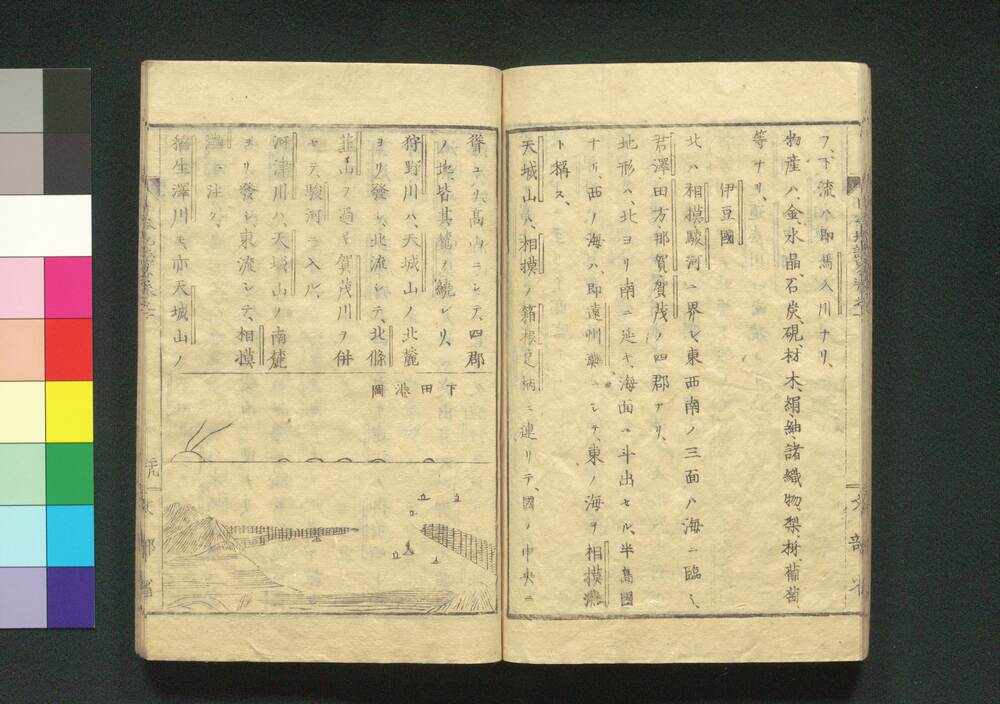 フ、下流ハ即馬入川ナリ、
物産ハ、金、水晶、石炭、硯、材木、絹、紬、諸織物、梨、柿、葡萄、
等ナリ、
伊豆國
北ハ相摸駿河ニ界シ、東西南ノ三面ハ海ニ臨ミ、
君澤田方、那賀賀茂ノ四郡アリ、
地形ハ、北ヨリ南ニ延ヒ、海面ニ斗出セル、半島國
ナリ、西ノ海ハ、即遠州灘ニシテ、東ノ海ヲ相摸灘
ト稱ス、
天城山ハ、相摸ノ箱根足柄ニ連リテ、國ノ中央ニ
聳ユリ、高山ニシテ、四郡
ノ地、皆其麓ノ繞レリ、
狩野川ハ、天城山ノ北麓
ヨリ發シ、北流シテ、北條
韮山ヲ過ヤ、賀茂川ヲ併
セテ、駿河ニ入ル、
河津川ハ、天城山ノ南麓
ヨリ發シ、東流シテ、相摸
灘ニ注ク、
稻生澤川モ、亦天城山ノ
下田港圖
文部省